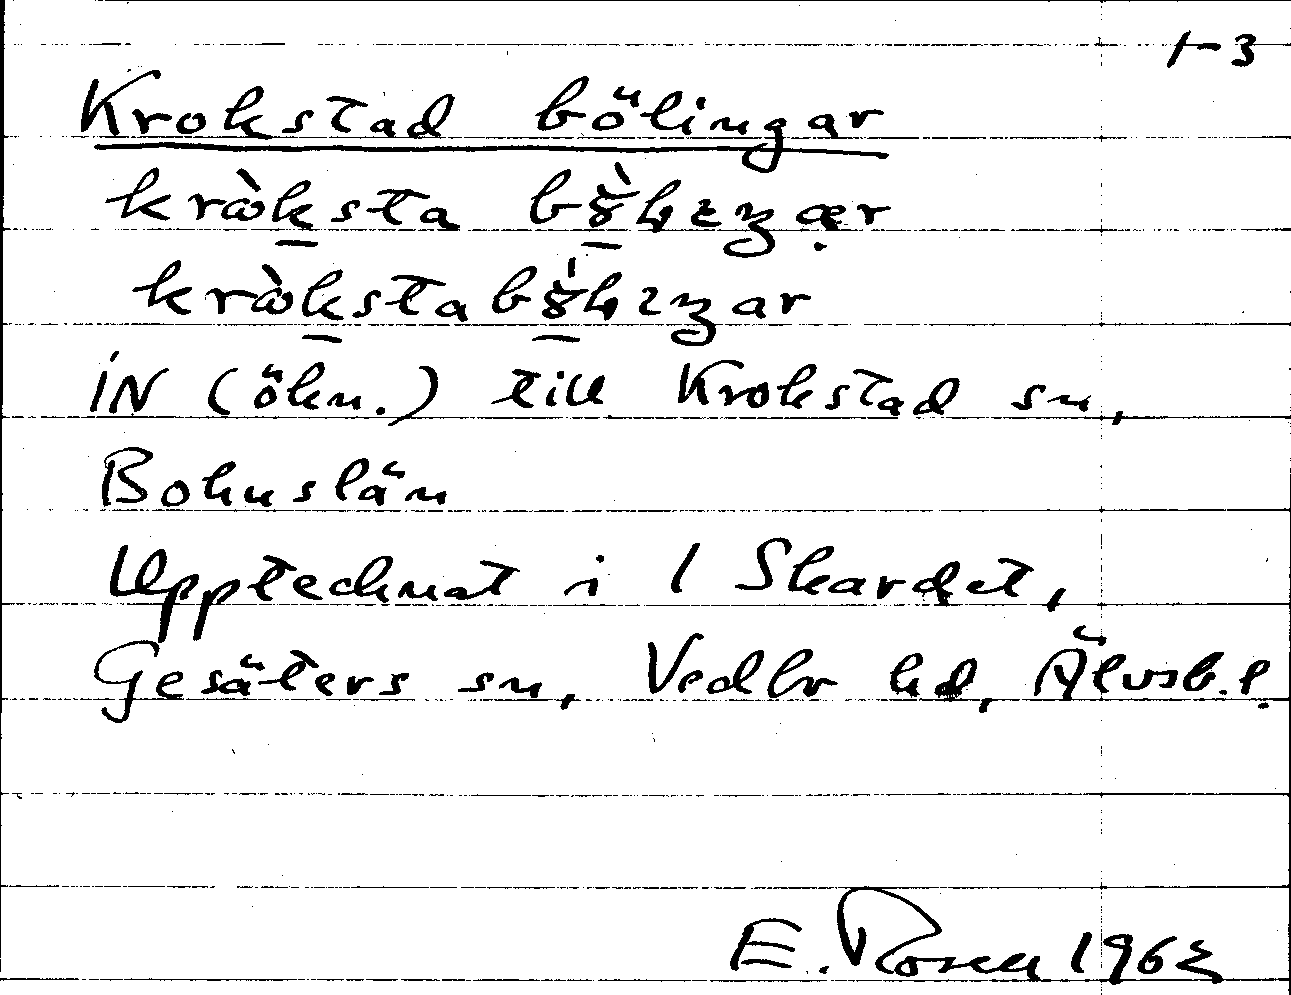 1-3
Krokstad bölingar
kròksta
kròksta
iN (ökn.) till Krokstad sn,
Bohuslän
Upptecknat i 1 Skardet,
Gesäters sn, Vedbo hd, Älvsb. l.
E. Rosen 1962